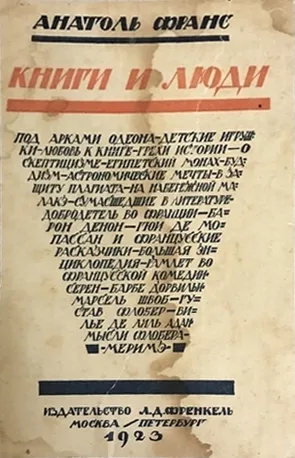 АНАТОЛЬ ФРАНС
КНИГИ И ЛЮДИ
ПОД АРКАМИ ОДЕОНА–ДЕТСКИЕ ИГРУШ-
КИ–ЛЮБОВЬ К КНИГЕ–ГРЕХИ ИСТОРИИ–О
СКЕПТИЦИЗМЕ–ЕГИПЕТСКИЙ МОНАХ–БУД-
ДИЗМ–АСТРОНОМИЧЕСКИЕ МЕЧТЫ–В ЗА-
ЩИТУ ПЛАГИАТА–НА НАБЕЖНОЙ МА-
ЛАКЭ–СУМАСШЕДШИЕ В ЛИТЕРАТУРЕ–
ДОБРОДЕТЕЛЬ ВО ФРАНЦИИ–БА-
РОН ДЕНОН–ГЮИ ДЕ МО-
ПАССАН И ФРАНЦУЗСКИЕ
РАССКАЗЧИКИ–БОЛЬШАЯ ЭН-
ЦИКЛОПЕДИЯ–ГАМЛЕТ ВО
ФРАНЦУЗСКОЙ КОМЕДИИ–
СЕРЕН–БАРБЕ ДОРВИЛЬИ–
МАРСЕЛЬ ШВОБ–ГУ-
СТАВ ФЛОБЕР–ВИ-
ЛЬЕ ДЕ ЛИЛЬ АДАН
МЫСЛИ ФЛОБЕРА–
МЕРИМЭ
ИЗДАТЕЛЬСТВО Л.Д.ФРЕНКЕЛЬ
МОСКВА/ПЕТЕРБУРГ
1923